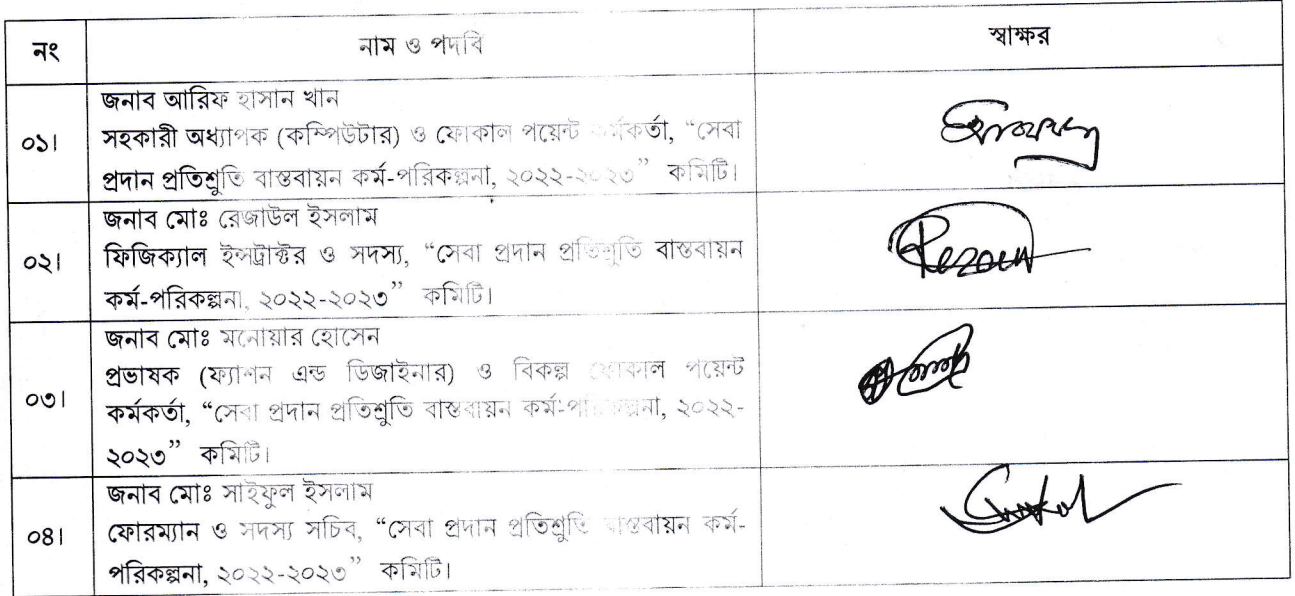 নং নাম ও পদবি স্বাক্ষর
০১। জনাব আরিফ হাসান খান
সহকারী অধ্যাপক (কম্পিউটার) ও ফোকাল পয়েন্ট কর্মকর্তা, “সেবা
প্রদান প্রতিশ্রুতি বাস্তবায়ন কর্ম-পরিকল্পনা, ২০২২-২০২৩” কমিটি।
০২। জনাব মোঃ রেজাউল ইসলাম
ফিজিক্যাল ইন্সট্রাক্টর ও সদস্য, “সেবা প্রদান প্রতিশ্রুতি বাস্তবায়ন
কর্ম-পরিকল্পনা, ২০২২-২০২৩” কমিটি।
০৩। জনাব মোঃ মনোয়ার হোসেন
প্রভাষক (ফ্যাশন এন্ড ডিজাইনার) ও বিকল্প ফোকাল পয়েন্ট
কর্মকর্তা, “সেবা প্রদান প্রতিশ্রুতি বাস্তবায়ন কর্ম-পরিকল্পনা, ২০২২-
২০২৩” কমিটি।
০৪। জনাব মোঃ সাইফুল ইসলাম
ফোরম্যান ও সদস্য সচিব, “সেবা প্রদান প্রতিশ্রুতি বাস্তবায়ন কর্ম-
পরিকল্পনা, ২০২২-২০২৩” কমিটি।